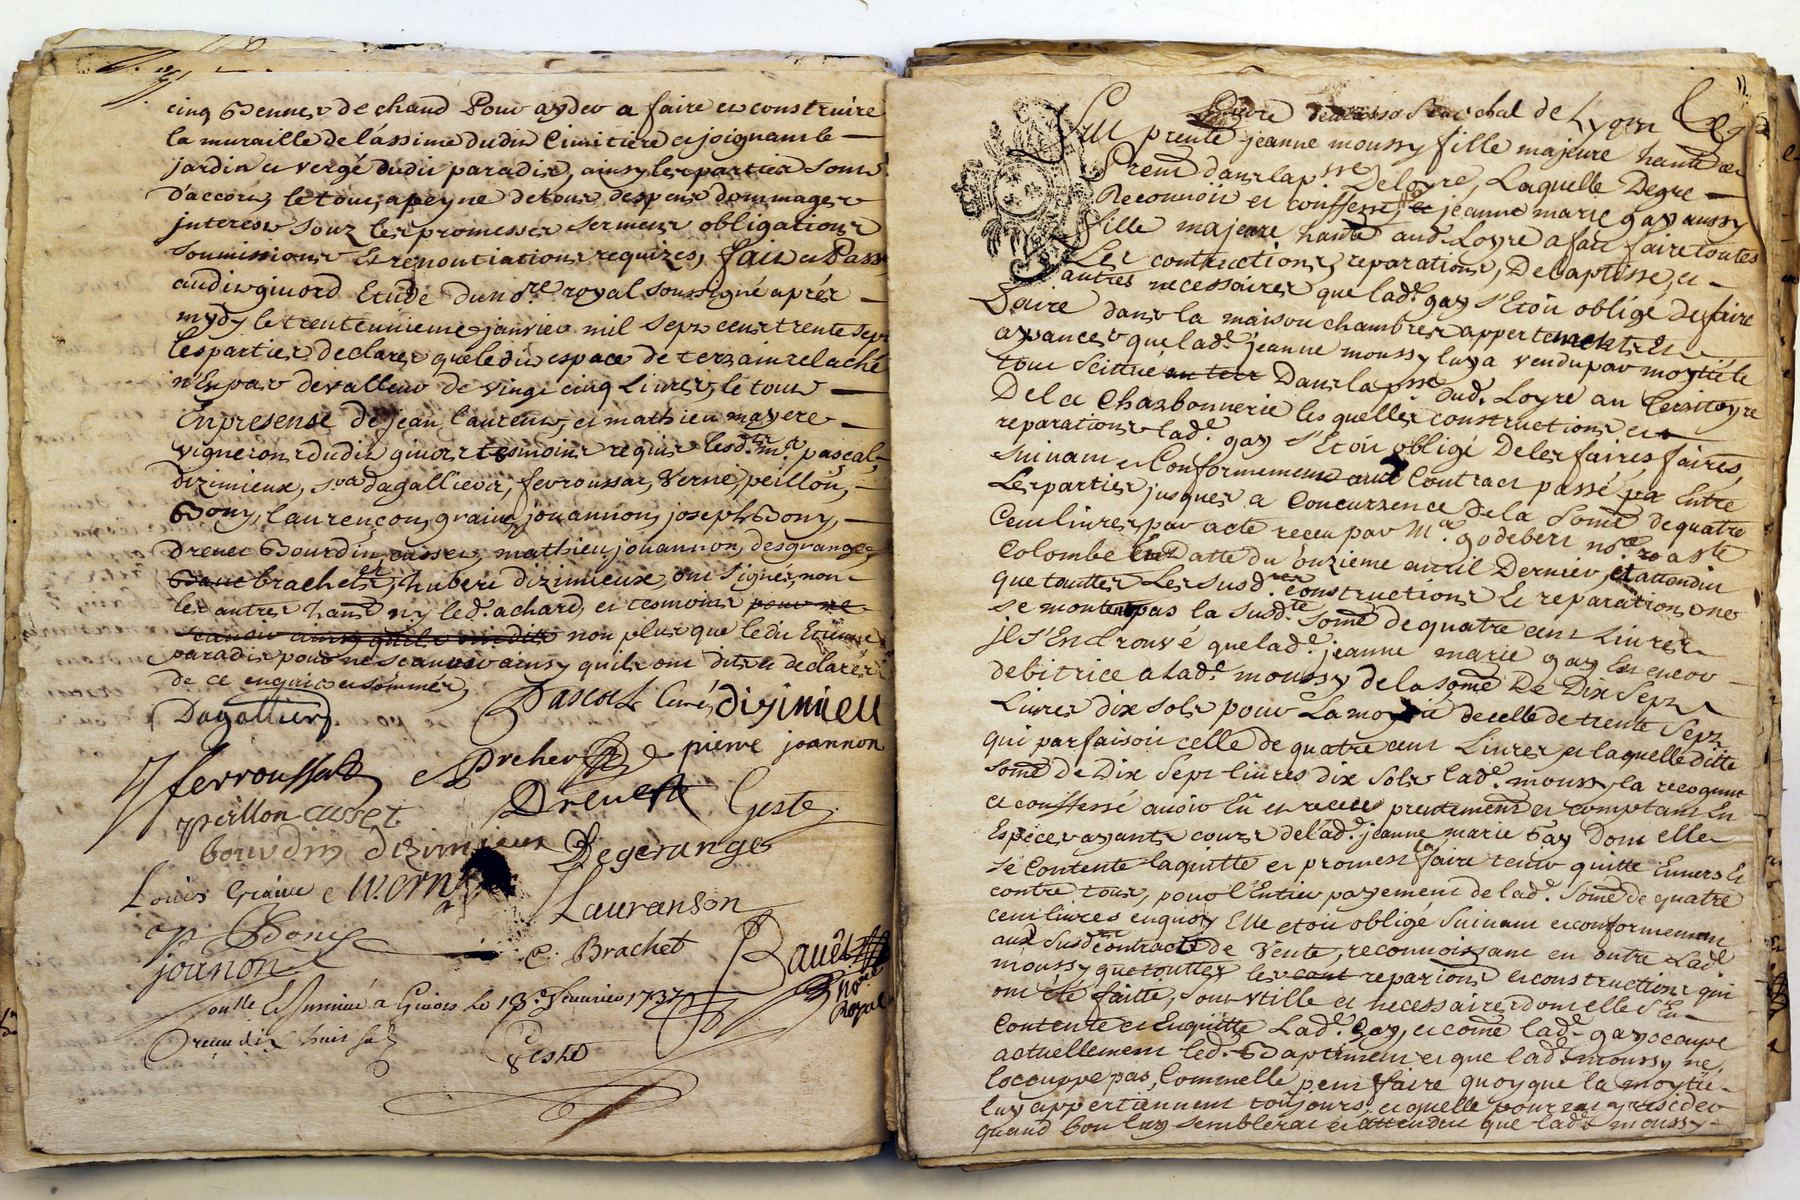 cinq Bennes de chaud Pour ayder a faire et construire
la muraille de lassime dudit Cimitiere et joignant le
jardin et vergé dudit paradis, ainsy les parties sont
d'accord, le tout a peyne de tous despens dommages
interests souz les promesses serment obligations
soumissions et renontiations requizes, fait et Passé
audit givord Etude du no.re royal soussigné aprés
mydy le trente unieme janvier mil sept cent trente sept
les parties declares que le dit espace de terrain relaché
n'Est pas de valleur de vingt cinq Livres, le tout
En presense de jean laurent, et mathieu mayere
vignerons dudit givors tesmoins requis lesd.ts m.e pascal,
dizimieux, s.r dagallier, ferroussat, Verne, peillon,
Bony, laurençon, graive, jouannon, joseph Bony,
Drevet Bourdin, casset, mathieu jouannon, desgranges,
brachet, et hubert dizimieux, ont signés, non
les autres hant ny led. achard, et tesmoins pour ne
scavoir ainsy qu'ils ont dit non plus que le dit Etienne
paradis pour ne scauoir ainsy quils ont dit et declarés
de ce enquis et sommés
Dagallier Pascal Curé, dizimieu
ferroussat Brchet pierre joannon
peillon casset Drevet Geste
bourdin dizimieux Degeranges
Louis Graive Verne Lauranson
Bony C. Brachet Bavet
jounon no.re Royal
Controllé et Insinué a Givors le 13.e feuvrier 1737
receu dix huit sols
Geste
de Lyon
Fut presente jeanne moussy fille majeure hante
Prent dans la p.sse De Loyre, Laquelle De gre
Reconnoit et confesse, que jeanne marie gay aussy
fille majeure hante aud. Loyre a fait faire toutes
Les contructions, reparations, De baptisse, et
autres necessaires que lad.e gay s'Etoit obligé de faire
faire dans la maison chambres appertements Et
avances que lad.e jeanne moussy luy a vendu par moytié le
tout scitué au terr Dans la p.sse dud. Loyre au territoyre
De la Charbonnerie les quelles constructions et
reparations lad.e gay s'Etoit obligé De les faires faires,
suivant et Conformement aud. Contract passé par Entre
Les parties, jusques a Concurrence De la some de quatre
Cent livres par acte receu par M.e godebert no.re a s.te
Colombe En Datte du onzieme avril Dernier, et attendu
que touttes Les susd.tes constructions et reparations ne
se montent pas la susd.te some de quatre cent Livres
il s'En trouvé que lad.e jeanne marie gay Est encor
debitrice a lad.e moussy de la some De Dix Sept
Livres dix sols pour La moytié de celle de trente Sept
qui parfaisoit celle de quatre cent Livres et laquelle ditte
some de Dix Sept livres dix Sols lad.e moussy la recognut
et conffessé avoir Eû et receu presentement et comptant En
Espece ayants cours de lad.e jeanne marie Gay Dont elle
se Contente laquitte et promest la faire tenir quitte Envers et
contre tous, pour l'Entier payement de lad.e some de quatre
cent livres enquoy Elle etoit obligé suivant et conformement
aud. susd. contract de Vente, reconnoissant en outre Lad.e
moussy que touttes les reparions et constructions qui
ont été faitte, sont vtille et necessaires dont elle s'En
Contente et Enquitte Lad.e Gay, et come lad.e gay occupe
actuellement led. Baptiment et que lad.e moussy ne
locouppe pas, Comme elle peut faire quoy que la moytié
luy appertiennent toujours et quelle pourra y resider
quand bon luy semblerat et attendu que lad.e moussy